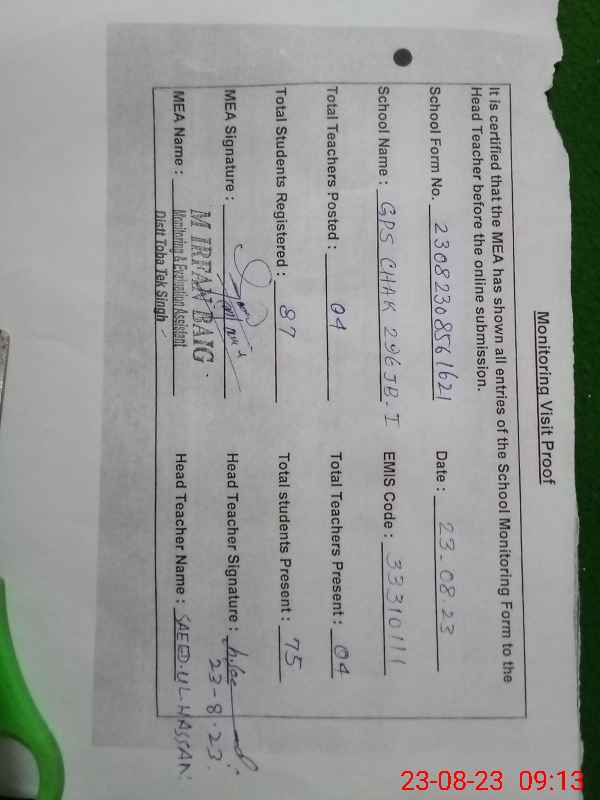 Monitoring Visit Proof
It is certified that the MEA has shown all entries of the School Monitoring Form to the
Head Teacher before the online submission.
School Form No. 23082308561621 Date : 23.08.23
School Name : GPS CHAK 296JB.I EMIS Code : 33310111
Total Teachers Posted : 04 Total Teachers Present : 04
Total Students Registered : 87 Total students Present : 75
MEA Signature : Head Teacher Signature :
23-8.23
M IRFAN BAIG
MEA Name : Monitoring & Evaluation Assistant Head Teacher Name : SAEED.UL.HASSAN
Distt Toba Tek Singh
23-08-23 09:13